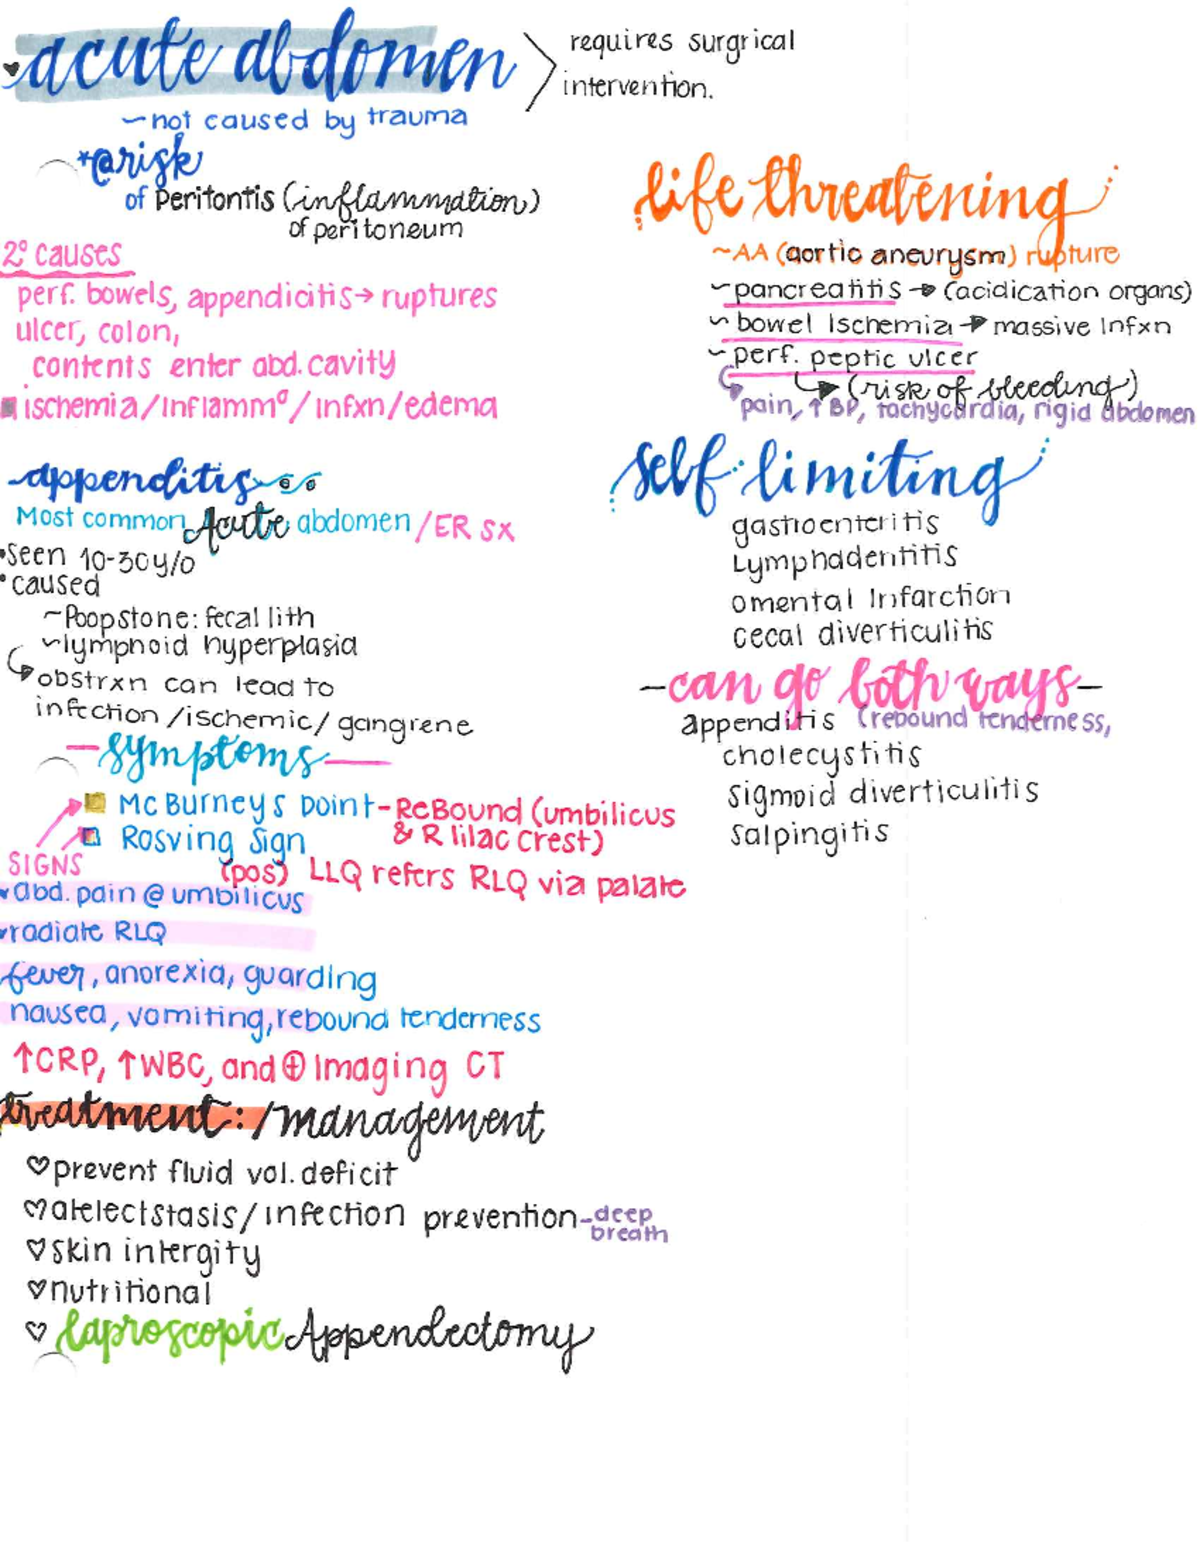 acute abdomen
requires surgrical
intervention.
~not caused by trauma
*@risk
of Peritontis (inflammation)
of peritoneum
2° causes
perf. bowels, appendicitis→ ruptures
ulcer, colon,
contents enter abd. cavity
ischemia/Inflammᵒ/infxn/edema
appenditis
Most common Acute abdomen/ER SX
•seen 10-30y/o
•caused
~Poopstone: fecal lith
~lymphoid hyperplasia
↳obstrxn can lead to
infection/ischemic/gangrene
—symptoms—
McBurneys point-ReBound (umbilicus
& R Iliac Crest)
Rosving Sign
SIGNS
(pos) LLQ refers RLQ via palate
abd. pain @ umbilicus
radiate RLQ
fever, anorexia, guarding
nausea, vomiting, rebound tenderness
↑CRP, ↑WBC, and ⊕ Imaging CT
treatment:/management
♡prevent fluid vol. deficit
♡atelectstasis/infection prevention-deep
breath
♡skin intergity
♡nutritional
♡ laproscopic Appendectomy
life threatening
~AA (aortic aneurysm) rupture
~pancreatitis → (acidication organs)
~bowel Ischemia → massive Infxn
~perf. peptic ulcer
↳(risk of bleeding)
↳pain, ↑BP, tachycardia, rigid abdomen
self-limiting
gastroenteritis
Lymphadentitis
omental Infarction
cecal diverticulitis
—can go both ways—
appenditis (rebound tenderness,
cholecystitis
sigmoid diverticulitis
salpingitis